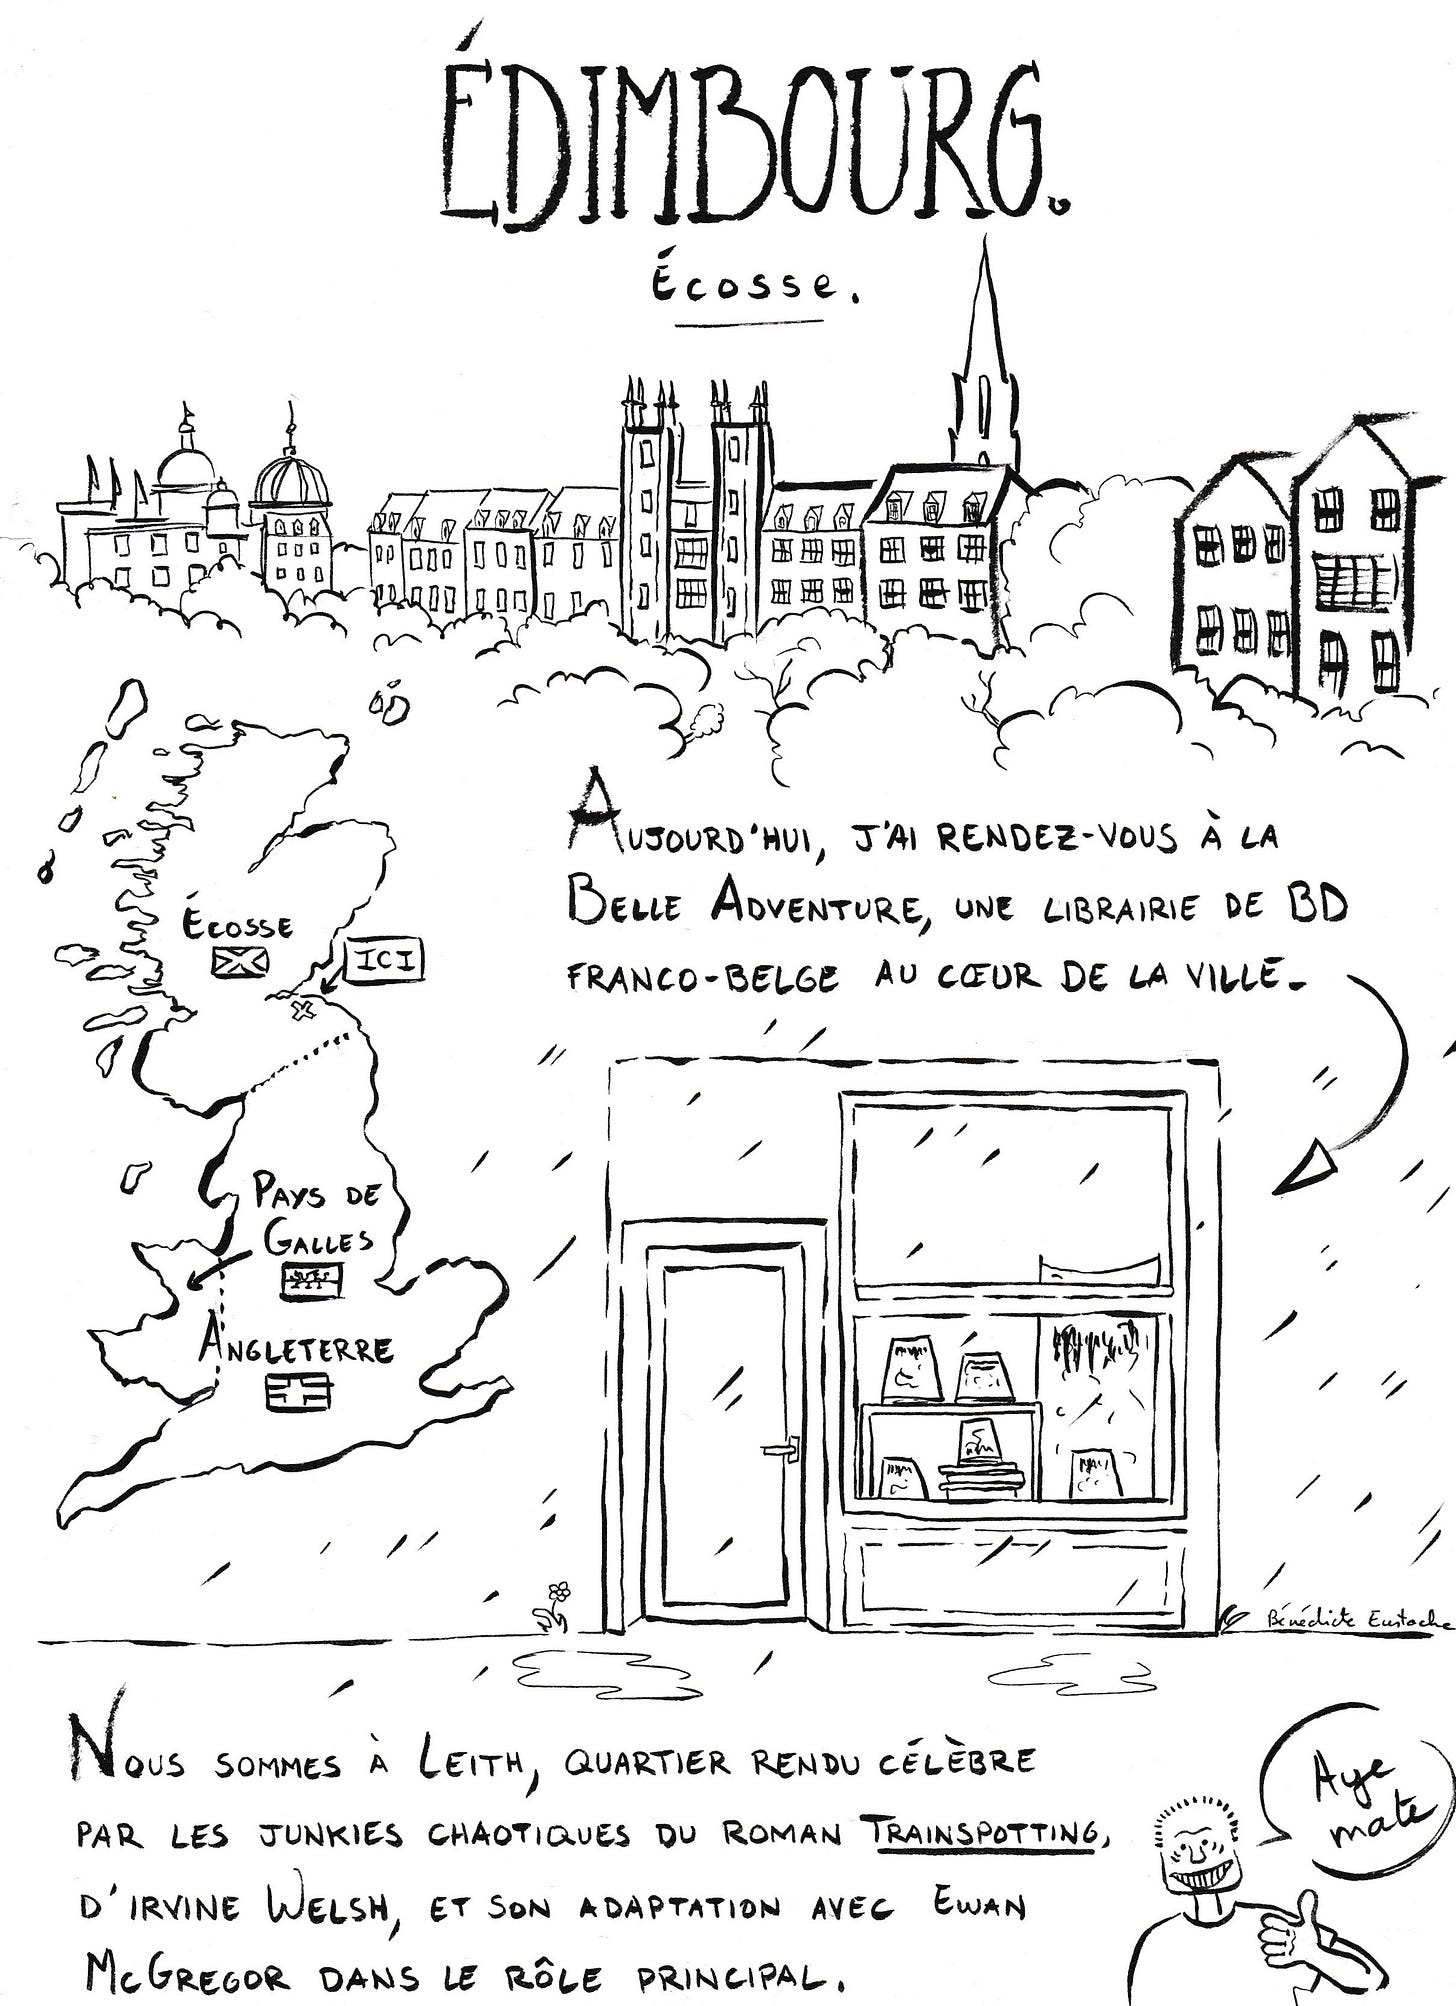 ÉDIMBOURG.
Écosse.
AUJOURD'HUI, J'AI RENDEZ-VOUS À LA
BELLE ADVENTURE, UNE LIBRAIRIE DE BD
FRANCO-BELGE AU CŒUR DE LA VILLE.
ÉCOSSE
ICI
PAYS DE
GALLES
ANGLETERRE
Bénédicte Eustache
NOUS SOMMES À LEITH, QUARTIER RENDU CÉLÈBRE
PAR LES JUNKIES CHAOTIQUES DU ROMAN TRAINSPOTTING,
D'IRVINE WELSH, ET SON ADAPTATION AVEC EWAN
MCGREGOR DANS LE RÔLE PRINCIPAL.
Aye
mate